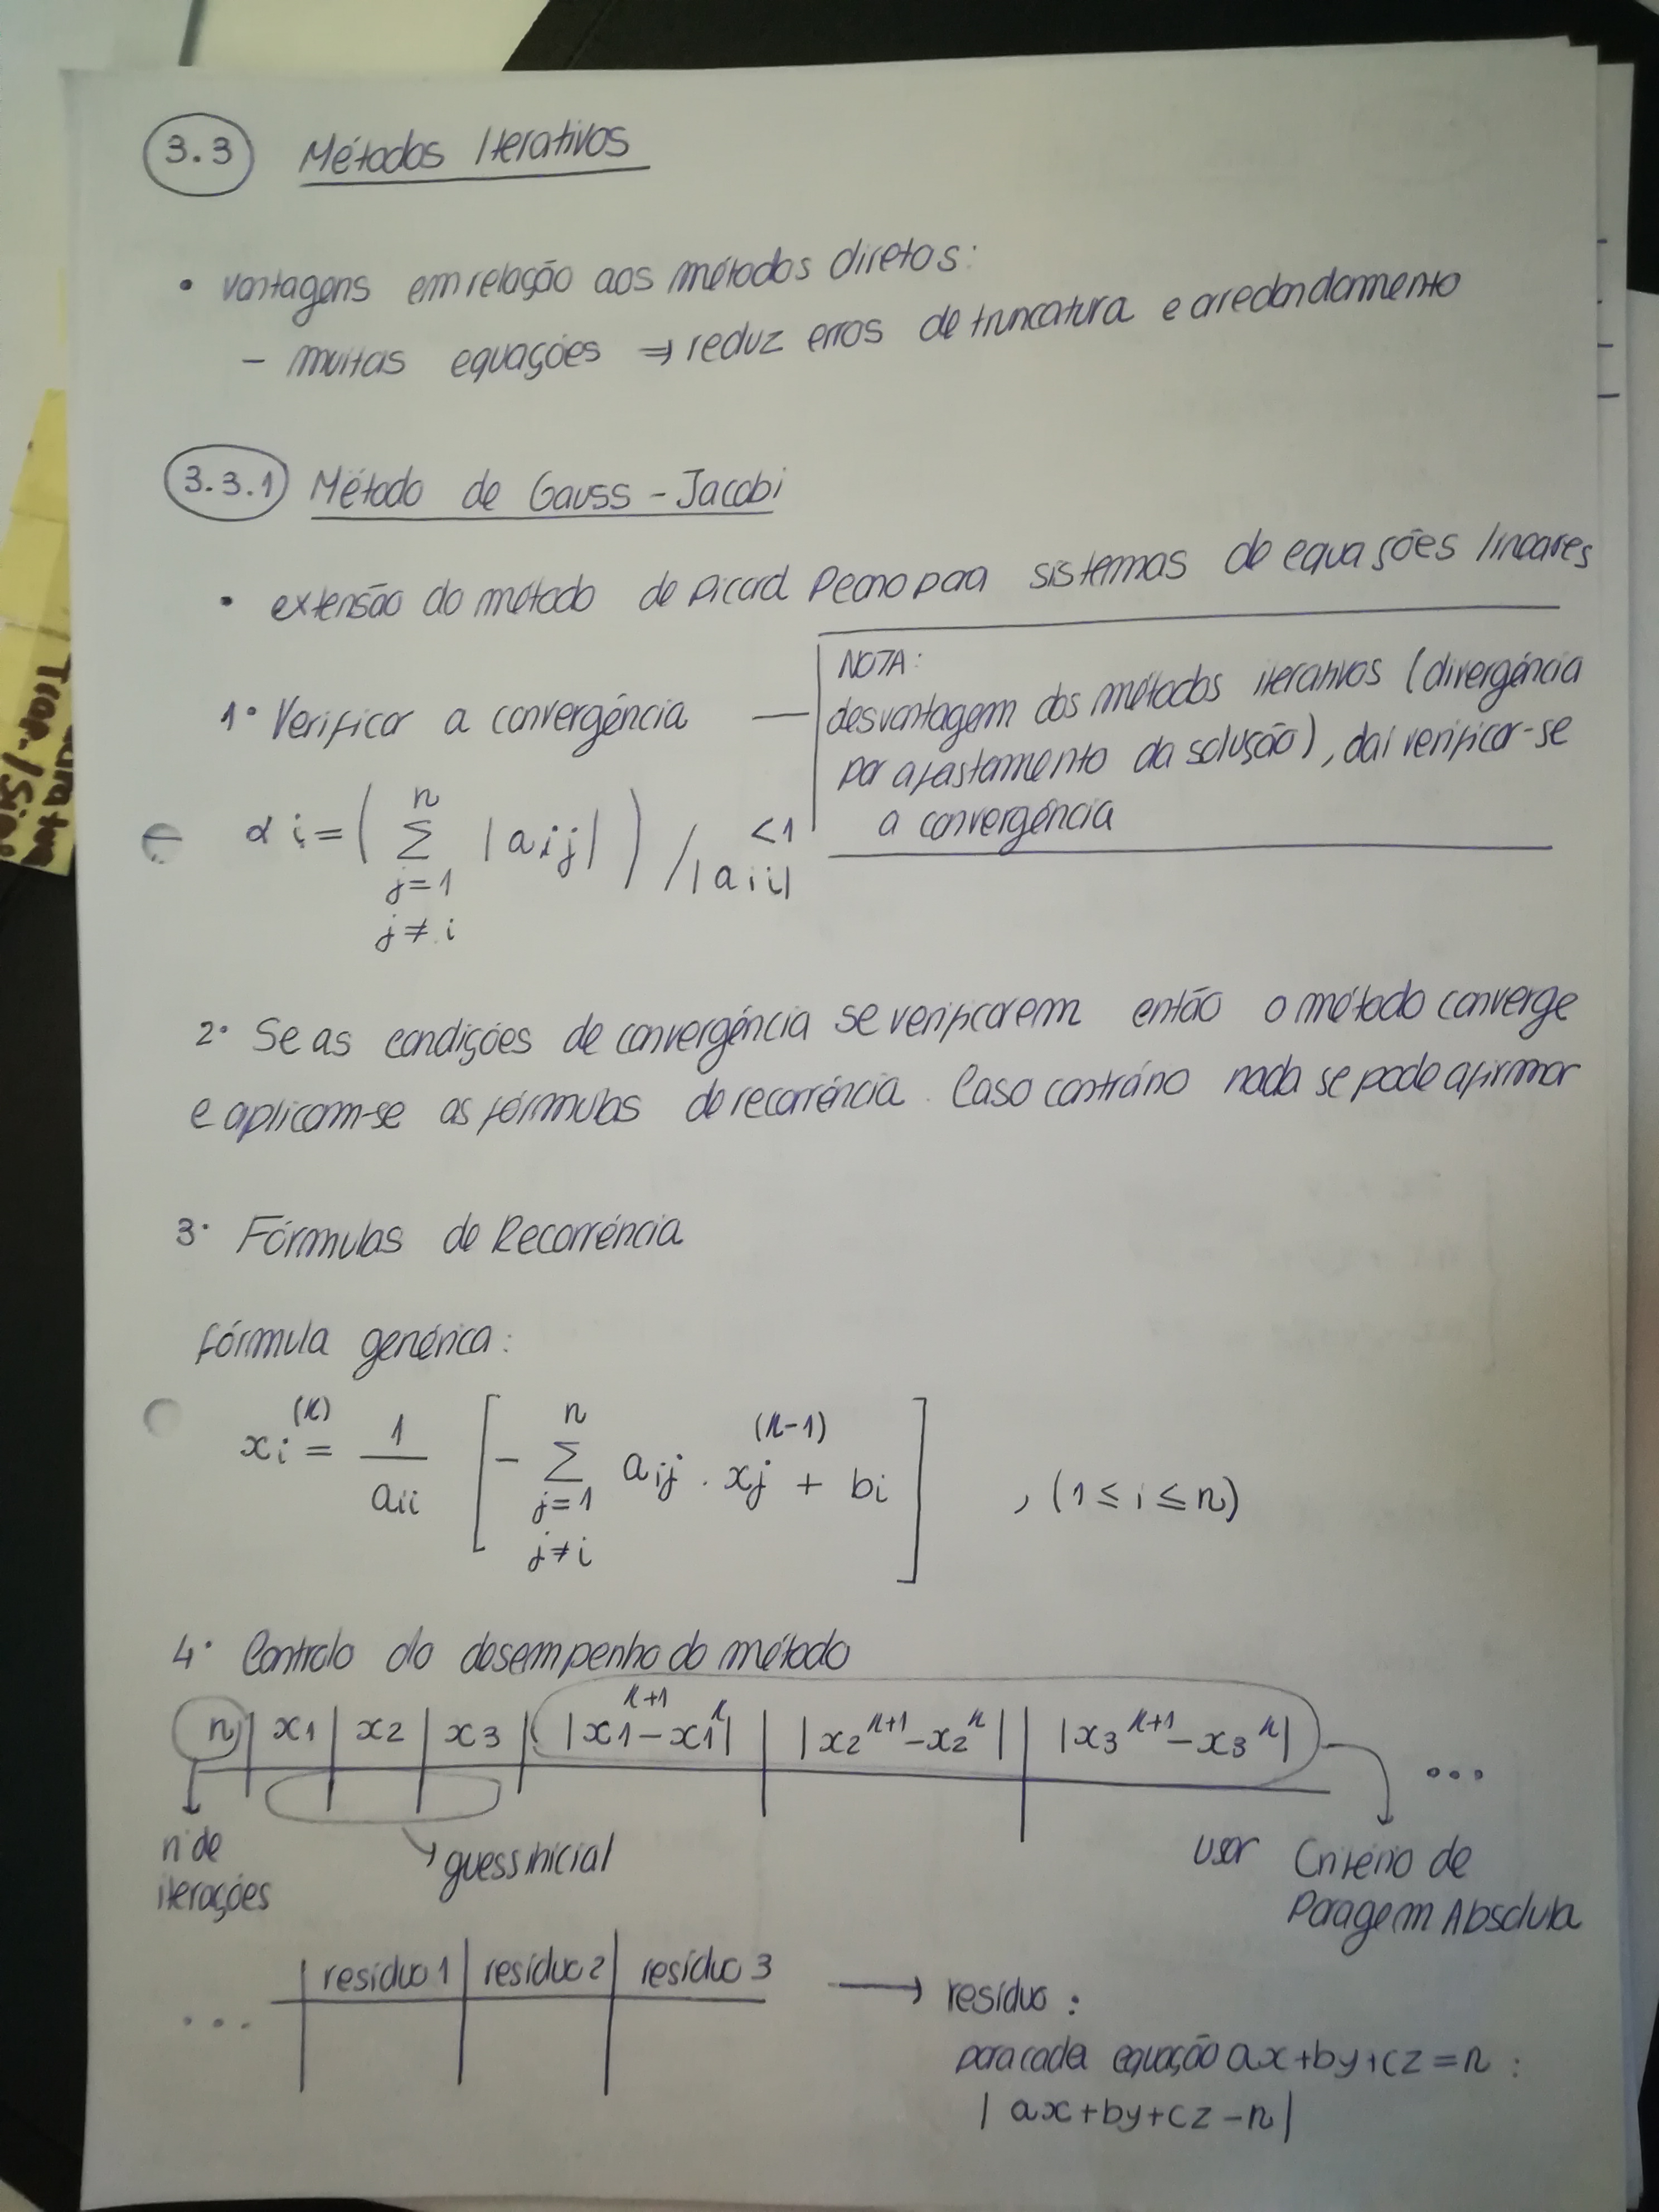 3.3 Métodos Iterativos
• vantagens em relação aos métodos diretos:
– muitas equações ⇒ reduz erros de truncatura e arredondamento
3.3.1 Método de Gauss - Jacobi
• extensão do método de Picard Peano para sistemas de equações lineares
1º Verificar a convergência —
NOTA:
desvantagem dos métodos iterativos (divergência
por afastamento da solução), daí verificar-se
a convergência
αi = ( n Σ j=1 j≠i |aij| ) / |aii| <1
2º Se as condições de convergência se verificarem então o método converge
e aplicam-se as fórmulas de recorrência. Caso contrário nada se pode afirmar
3º Fórmulas de Recorrência
fórmula genérica:
xi^(k) = 1/aii [ - n Σ j=1 j≠i aij . xj^(k-1) + bi ] , (1 ≤ i ≤ n)
4º Controlo do desempenho do método
n | x1 | x2 | x3 | |x1^k+1 - x1^k| | |x2^k+1 - x2^k| | |x3^k+1 - x3^k| ...
nº de
iterações
guess inicial
usar Critério de
Paragem Absoluta
... resíduo 1 | resíduo 2 | resíduo 3 → resíduo :
para cada equação ax+by+cz = n :
| ax+by+cz - n |
Trap./Sim